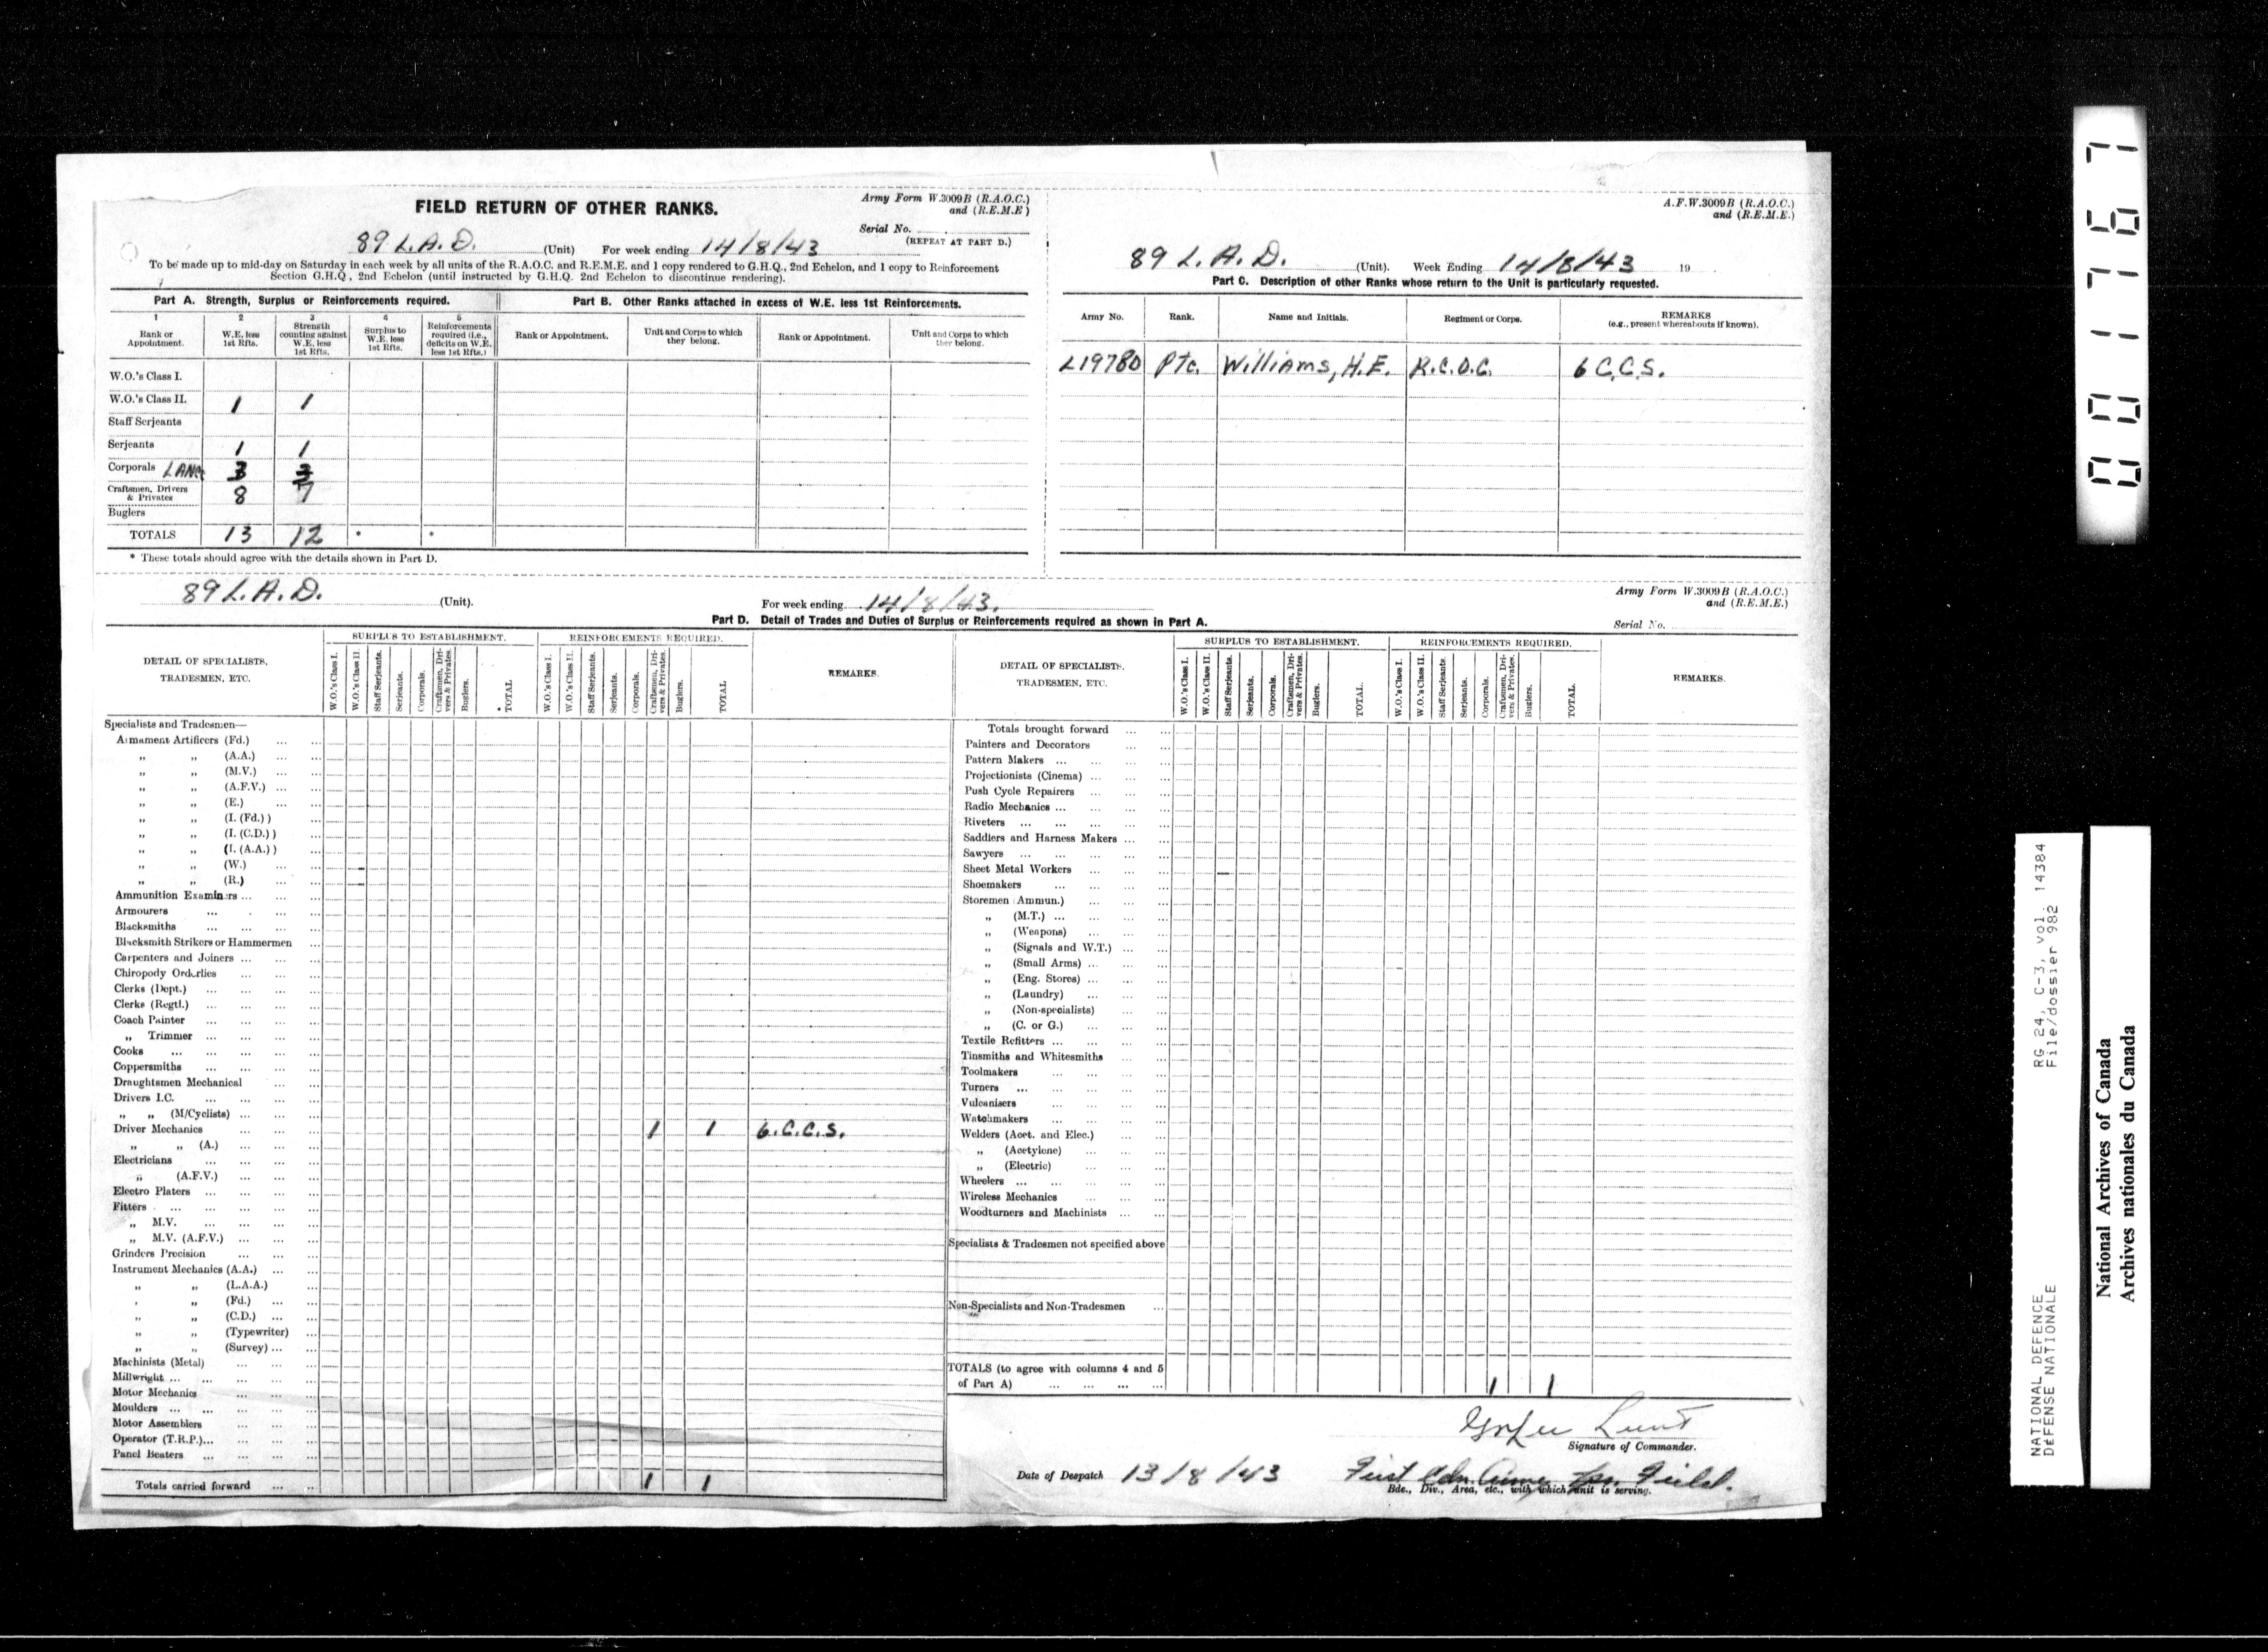 FIELD RETURN OF OTHER RANKS.
Army Form W.3009B (R.A.O.C.)
and (R.E.M.E)
Serial No.
(REPEAT AT PART D.)
89 L.A.D. (Unit) For week ending 14/8/43
To be made up to mid-day on Saturday in each week by all units of the R.A.O.C. and R.E.M.E. and 1 copy rendered to G.H.Q., 2nd Echelon, and 1 copy to Reinforcement
Section G.H.Q., 2nd Echelon (until instructed by G.H.Q. 2nd Echelon to discontinue rendering).
Part A. Strength, Surplus or Reinforcements required.
Part B. Other Ranks attached in excess of W.E. less 1st Reinforcements.
1 2 3 4 5
Rank or Appointment. W.E. less 1st Rfts. Strength counting against W.E. less 1st Rfts. Surplus to W.E. less 1st Rfts. Reinforcements required (i.e., deficits on W.E. less 1st Rfts.)
Rank or Appointment. Unit and Corps to which they belong. Rank or Appointment. Unit and Corps to which they belong.
W.O.'s Class I.
W.O.'s Class II. 1 1
Staff Serjeants
Serjeants 1 1
Corporals 3 3
Craftsmen, Drivers & Privates 8 7
Buglers
TOTALS 13 12 * *
* These totals should agree with the details shown in Part D.
A.F.W.3009B (R.A.O.C.)
and (R.E.M.E.)
89 L.A.D. (Unit). Week Ending 14/8/43 19
Part C. Description of other Ranks whose return to the Unit is particularly requested.
Army No. Rank. Name and Initials. Regiment or Corps. REMARKS (e.g., present whereabouts if known).
L19780 Pte. Williams, H.E. R.C.O.C. 6 C.C.S.
89 L.A.D. (Unit). For week ending 14/8/43.
Army Form W.3009B (R.A.O.C.)
and (R.E.M.E.)
Part D. Detail of Trades and Duties of Surplus or Reinforcements required as shown in Part A.
Serial No.
DETAIL OF SPECIALISTS, TRADESMEN, ETC.
SURPLUS TO ESTABLISHMENT. REINFORCEMENTS REQUIRED. REMARKS.
W.O.'s Class I. W.O.'s Class II. Staff Serjeants. Serjeants. Corporals. Craftsmen, Drivers & Privates. Buglers. * TOTAL
W.O.'s Class I. W.O.'s Class II. Staff Serjeants. Serjeants. Corporals. Craftsmen, Drivers & Privates. Buglers. TOTAL
Specialists and Tradesmen—
Armament Artificers (Fd.)
„ „ (A.A.)
„ „ (M.V.)
„ „ (A.F.V.)
„ „ (E.)
„ „ (I. (Fd.) )
„ „ (I. (C.D.) )
„ „ (I. (A.A.) )
„ „ (W.)
„ „ (R.)
Ammunition Examiners
Armourers
Blacksmiths
Blacksmith Strikers or Hammermen
Carpenters and Joiners
Chiropody Orderlies
Clerks (Dept.)
Clerks (Regtl.)
Coach Painter
„ Trimmer
Cooks
Coppersmiths
Draughtsmen Mechanical
Drivers I.C.
„ „ (M/Cyclists)
Driver Mechanics 1 1 6.C.C.S.
„ „ (A.)
Electricians
„ (A.F.V.)
Electro Platers
Fitters
„ M.V.
„ M.V. (A.F.V.)
Grinders Precision
Instrument Mechanics (A.A.)
„ „ (L.A.A.)
„ „ (Fd.)
„ „ (C.D.)
„ „ (Typewriter)
„ „ (Survey)
Machinists (Metal)
Millwright
Motor Mechanics
Moulders
Motor Assemblers
Operator (T.R.P.)
Panel Beaters
Totals carried forward 1 1
DETAIL OF SPECIALISTS, TRADESMEN, ETC.
SURPLUS TO ESTABLISHMENT. REINFORCEMENTS REQUIRED. REMARKS.
W.O.'s Class I. W.O.'s Class II. Staff Serjeants. Serjeants. Corporals. Craftsmen, Drivers & Privates. Buglers. TOTAL.
W.O.'s Class I. W.O.'s Class II. Staff Serjeants. Serjeants. Corporals. Craftsmen, Drivers & Privates. Buglers. TOTAL.
Totals brought forward
Painters and Decorators
Pattern Makers
Projectionists (Cinema)
Push Cycle Repairers
Radio Mechanics
Riveters
Saddlers and Harness Makers
Sawyers
Sheet Metal Workers
Shoemakers
Storemen (Ammun.)
„ (M.T.)
„ (Weapons)
„ (Signals and W.T.)
„ (Small Arms)
„ (Eng. Stores)
„ (Laundry)
„ (Non-specialists)
„ (C. or G.)
Textile Refitters
Tinsmiths and Whitesmiths
Toolmakers
Turners
Vulcanisers
Watchmakers
Welders (Acet. and Elec.)
„ (Acetylene)
„ (Electric)
Wheelers
Wireless Mechanics
Woodturners and Machinists
Specialists & Tradesmen not specified above
Non-Specialists and Non-Tradesmen
TOTALS (to agree with columns 4 and 5
of Part A) 1 1
Signature of Commander.
Date of Despatch 13/8/43 First Cdn. Field.
Bde., Div., Area, etc., with which unit is serving.
001767
NATIONAL DEFENCE RG 24, C-3, vol. 14384
DÉFENSE NATIONALE File/dossier 982
National Archives of Canada
Archives nationales du Canada